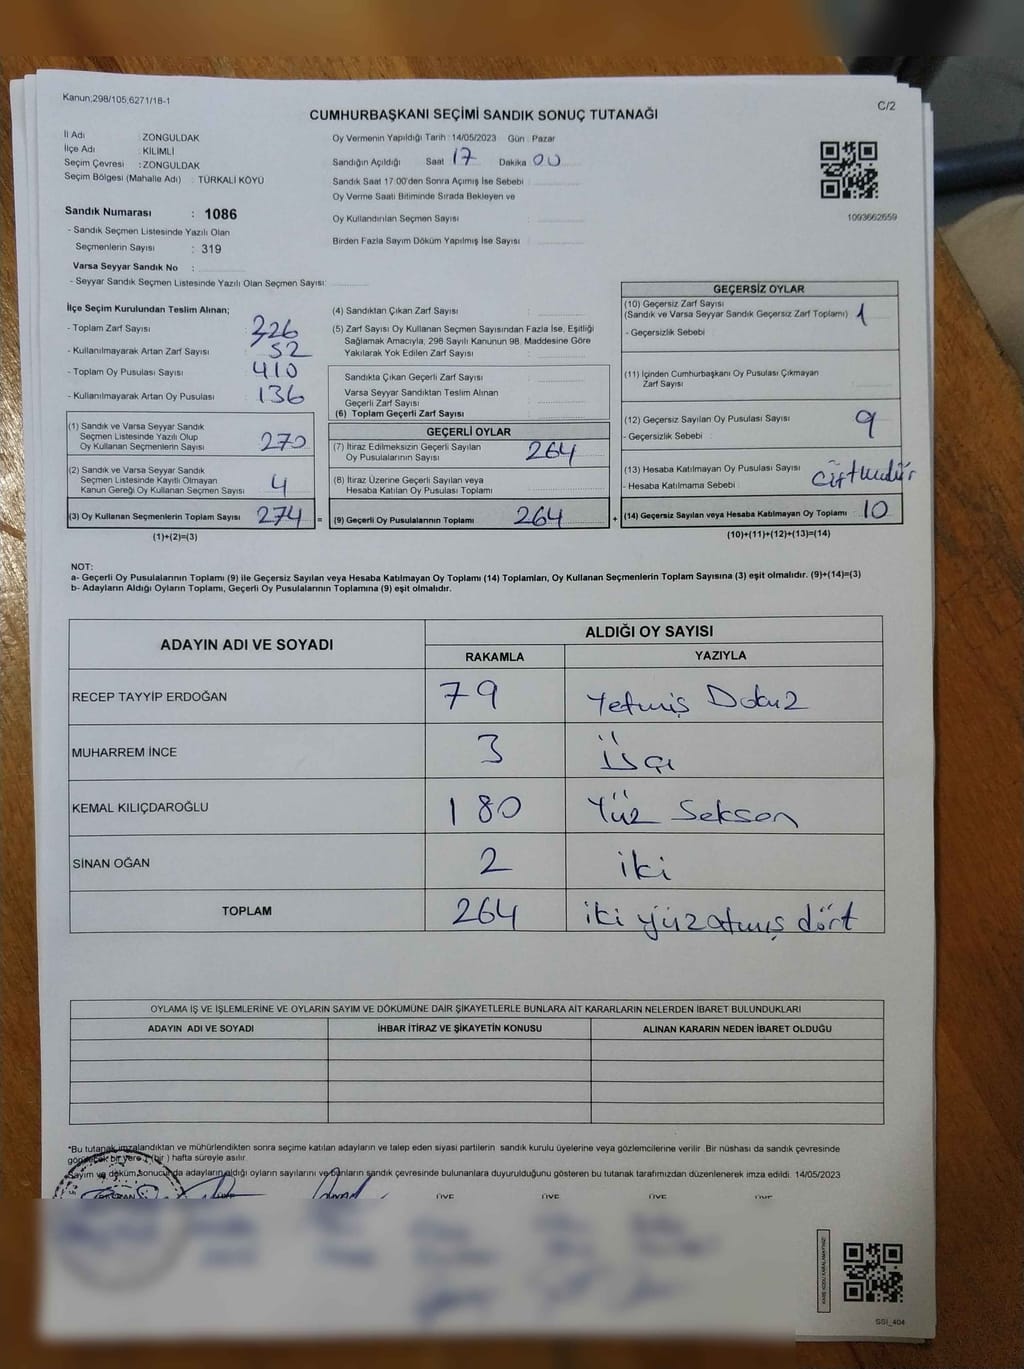 Kanun;298/105,6271/18-1
C/2
CUMHURBAŞKANI SEÇİMİ SANDIK SONUÇ TUTANAĞI
İl Adı : ZONGULDAK
İlçe Adı : KİLİMLİ
Seçim Çevresi : ZONGULDAK
Seçim Bölgesi (Mahalle Adı) : TÜRKALİ KÖYÜ
Sandık Numarası : 1086
- Sandık Seçmen Listesinde Yazılı Olan
Seçmenlerin Sayısı : 319
Varsa Seyyar Sandık No :
- Seyyar Sandık Seçmen Listesinde Yazılı Olan Seçmen Sayısı:
Oy Vermenin Yapıldığı Tarih : 14/05/2023 Gün : Pazar
Sandığın Açıldığı Saat 17 Dakika 00
Sandık Saat 17:00'den Sonra Açımış İse Sebebi :
Oy Verme Saati Bitiminde Sırada Bekleyen ve
Oy Kullandırılan Seçmen Sayısı :
Birden Fazla Sayım Döküm Yapılmış İse Sayısı :
1093662659
İlçe Seçim Kurulundan Teslim Alınan;
- Toplam Zarf Sayısı : 326
- Kullanılmayarak Artan Zarf Sayısı : 52
- Toplam Oy Pusulası Sayısı : 410
- Kullanılmayarak Artan Oy Pusulası : 136
(1) Sandık ve Varsa Seyyar Sandık
Seçmen Listesinde Yazılı Olup
Oy Kullanan Seçmenlerin Sayısı 270
(2) Sandık ve Varsa Seyyar Sandık
Seçmen Listesinde Kayıtlı Olmayan
Kanun Gereği Oy Kullanan Seçmen Sayısı 4
(3) Oy Kullanan Seçmenlerin Toplam Sayısı 274 =
(1)+(2)=(3)
(4) Sandıktan Çıkan Zarf Sayısı :
(5) Zarf Sayısı Oy Kullanan Seçmen Sayısından Fazla İse, Eşitliği
Sağlamak Amacıyla, 298 Sayılı Kanunun 98. Maddesine Göre
Yakılarak Yok Edilen Zarf Sayısı :
Sandıkta Çıkan Geçerli Zarf Sayısı :
Varsa Seyyar Sandıktan Teslim Alınan
Geçerli Zarf Sayısı :
(6) Toplam Geçerli Zarf Sayısı :
GEÇERLİ OYLAR
(7) İtiraz Edilmeksizin Geçerli Sayılan
Oy Pusulalarının Sayısı 264
(8) İtiraz Üzerine Geçerli Sayılan veya
Hesaba Katılan Oy Pusulası Toplamı
(9) Geçerli Oy Pusulalarının Toplamı 264 +
GEÇERSİZ OYLAR
(10) Geçersiz Zarf Sayısı
(Sandık ve Varsa Seyyar Sandık Geçersiz Zarf Toplamı) 1
- Geçersizlik Sebebi
(11) İçinden Cumhurbaşkanı Oy Pusulası Çıkmayan
Zarf Sayısı
(12) Geçersiz Sayılan Oy Pusulası Sayısı 9
- Geçersizlik Sebebi :
(13) Hesaba Katılmayan Oy Pusulası Sayısı
- Hesaba Katılmama Sebebi :
(14) Geçersiz Sayılan veya Hesaba Katılmayan Oy Toplamı 10
(10)+(11)+(12)+(13)=(14)
NOT:
a- Geçerli Oy Pusulalarının Toplamı (9) ile Geçersiz Sayılan veya Hesaba Katılmayan Oy Toplamı (14) Toplamları, Oy Kullanan Seçmenlerin Toplam Sayısına (3) eşit olmalıdır. (9)+(14)=(3)
b- Adayların Aldığı Oyların Toplamı, Geçerli Oy Pusulalarının Toplamına (9) eşit olmalıdır.
ADAYIN ADI VE SOYADI
ALDIĞI OY SAYISI
RAKAMLA YAZIYLA
RECEP TAYYİP ERDOĞAN 79 Yetmiş Dokuz
MUHARREM İNCE 3 Üç
KEMAL KILIÇDAROĞLU 180 Yüz Seksen
SİNAN OĞAN 2 iki
TOPLAM 264 iki yüzatmış dört
OYLAMA İŞ VE İŞLEMLERİNE VE OYLARIN SAYIM VE DÖKÜMÜNE DAİR ŞİKAYETLERLE BUNLARA AİT KARARLARIN NELERDEN İBARET BULUNDUKLARI
ADAYIN ADI VE SOYADI İHBAR İTİRAZ VE ŞİKAYETİN KONUSU ALINAN KARARIN NEDEN İBARET OLDUĞU
*Bu tutanak imzalandıktan ve mühürlendikten sonra seçime katılan adayların ve talep eden siyasi partilerin sandık kurulu üyelerine veya gözlemcilerine verilir. Bir nüshası da sandık çevresinde
görülecek bir yere 1 (bir ) hafta süreyle asılır.
Sayım ve döküm sonucunda adayların aldığı oyların sayılarını ve bunların sandık çevresinde bulunanlara duyurulduğunu gösteren bu tutanak tarafımızdan düzenlenerek imza edildi. 14/05/2023
ÜYE ÜYE ÜYE ÜYE
SSI_404